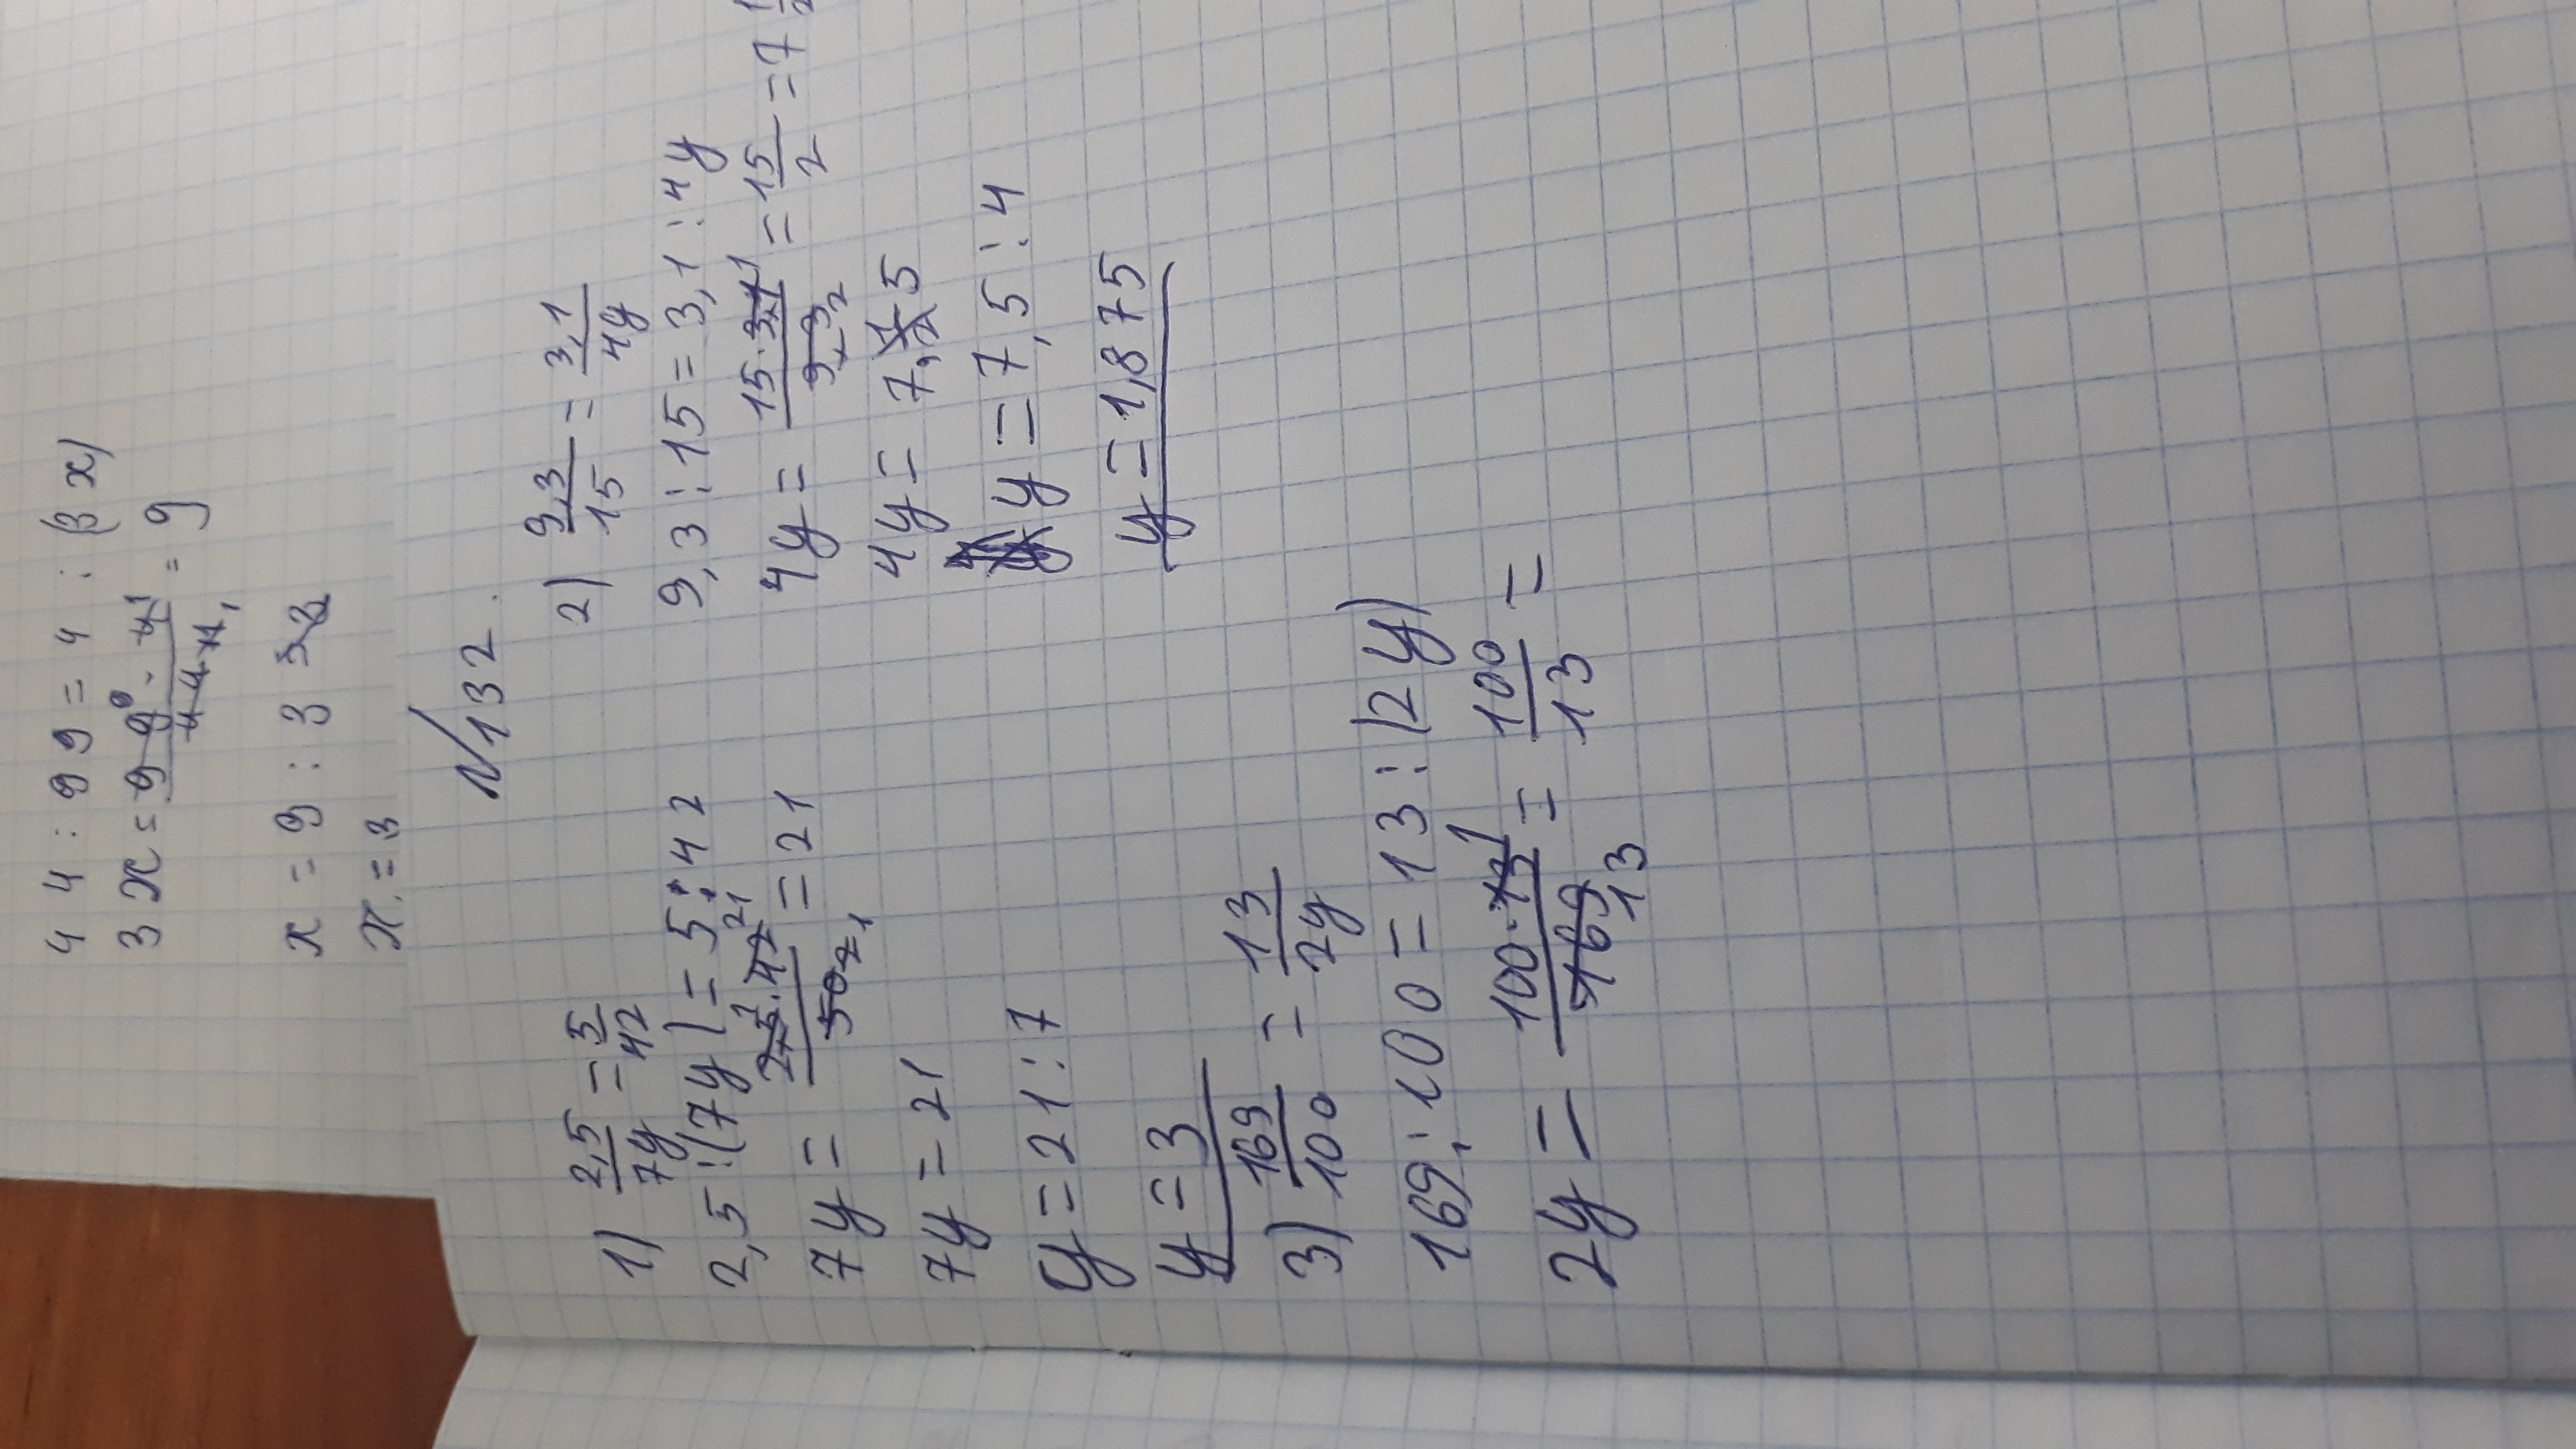 44 : 99 = 4 : (3x)
3x = 99⁹ · 4¹ / 44 11₁ = 9
x = 9 : 3
x = 3
N132.
1) 2,5/7y = 5/42
2,5 : (7y) = 5 : 42
7y = 2,5 · 42 21 / 5 = 21
7y = 21
y = 21 : 7
y = 3
2) 9,3/15 = 3,1/4y
9,3 : 15 = 3,1 : 4y
4y = 15 · 3,1 1 / 9,3 2 = 15/2 = 7 1/2
4y = 7,5
y = 7,5 : 4
y = 1,875
3) 169/100 = 13/2y
169 : 100 = 13 : (2y)
2y = 100 · 13 1 / 169 13 = 100/13 =